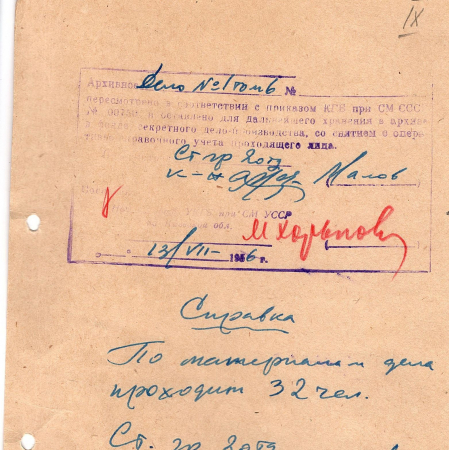 IX
Архивное Дело №1 том 6 №
пересмотрено в соответствии с приказом КГБ при СМ ССС
№ 00150 и оставлено для дальнейшего хранения в архив
секретного делопроизводства, со снятием с опера
справочного учета проходящего лица.
Ст. гр 2 отд
к-н Жалов
СМ УССР
обл.
13/VII- 1956 г.
Справка
По материалам дела
проходит 32 чел.
Ст. гр 2 отд